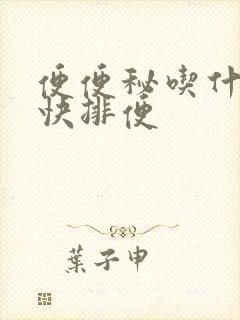 便便秘喫什
快排便
葉子申